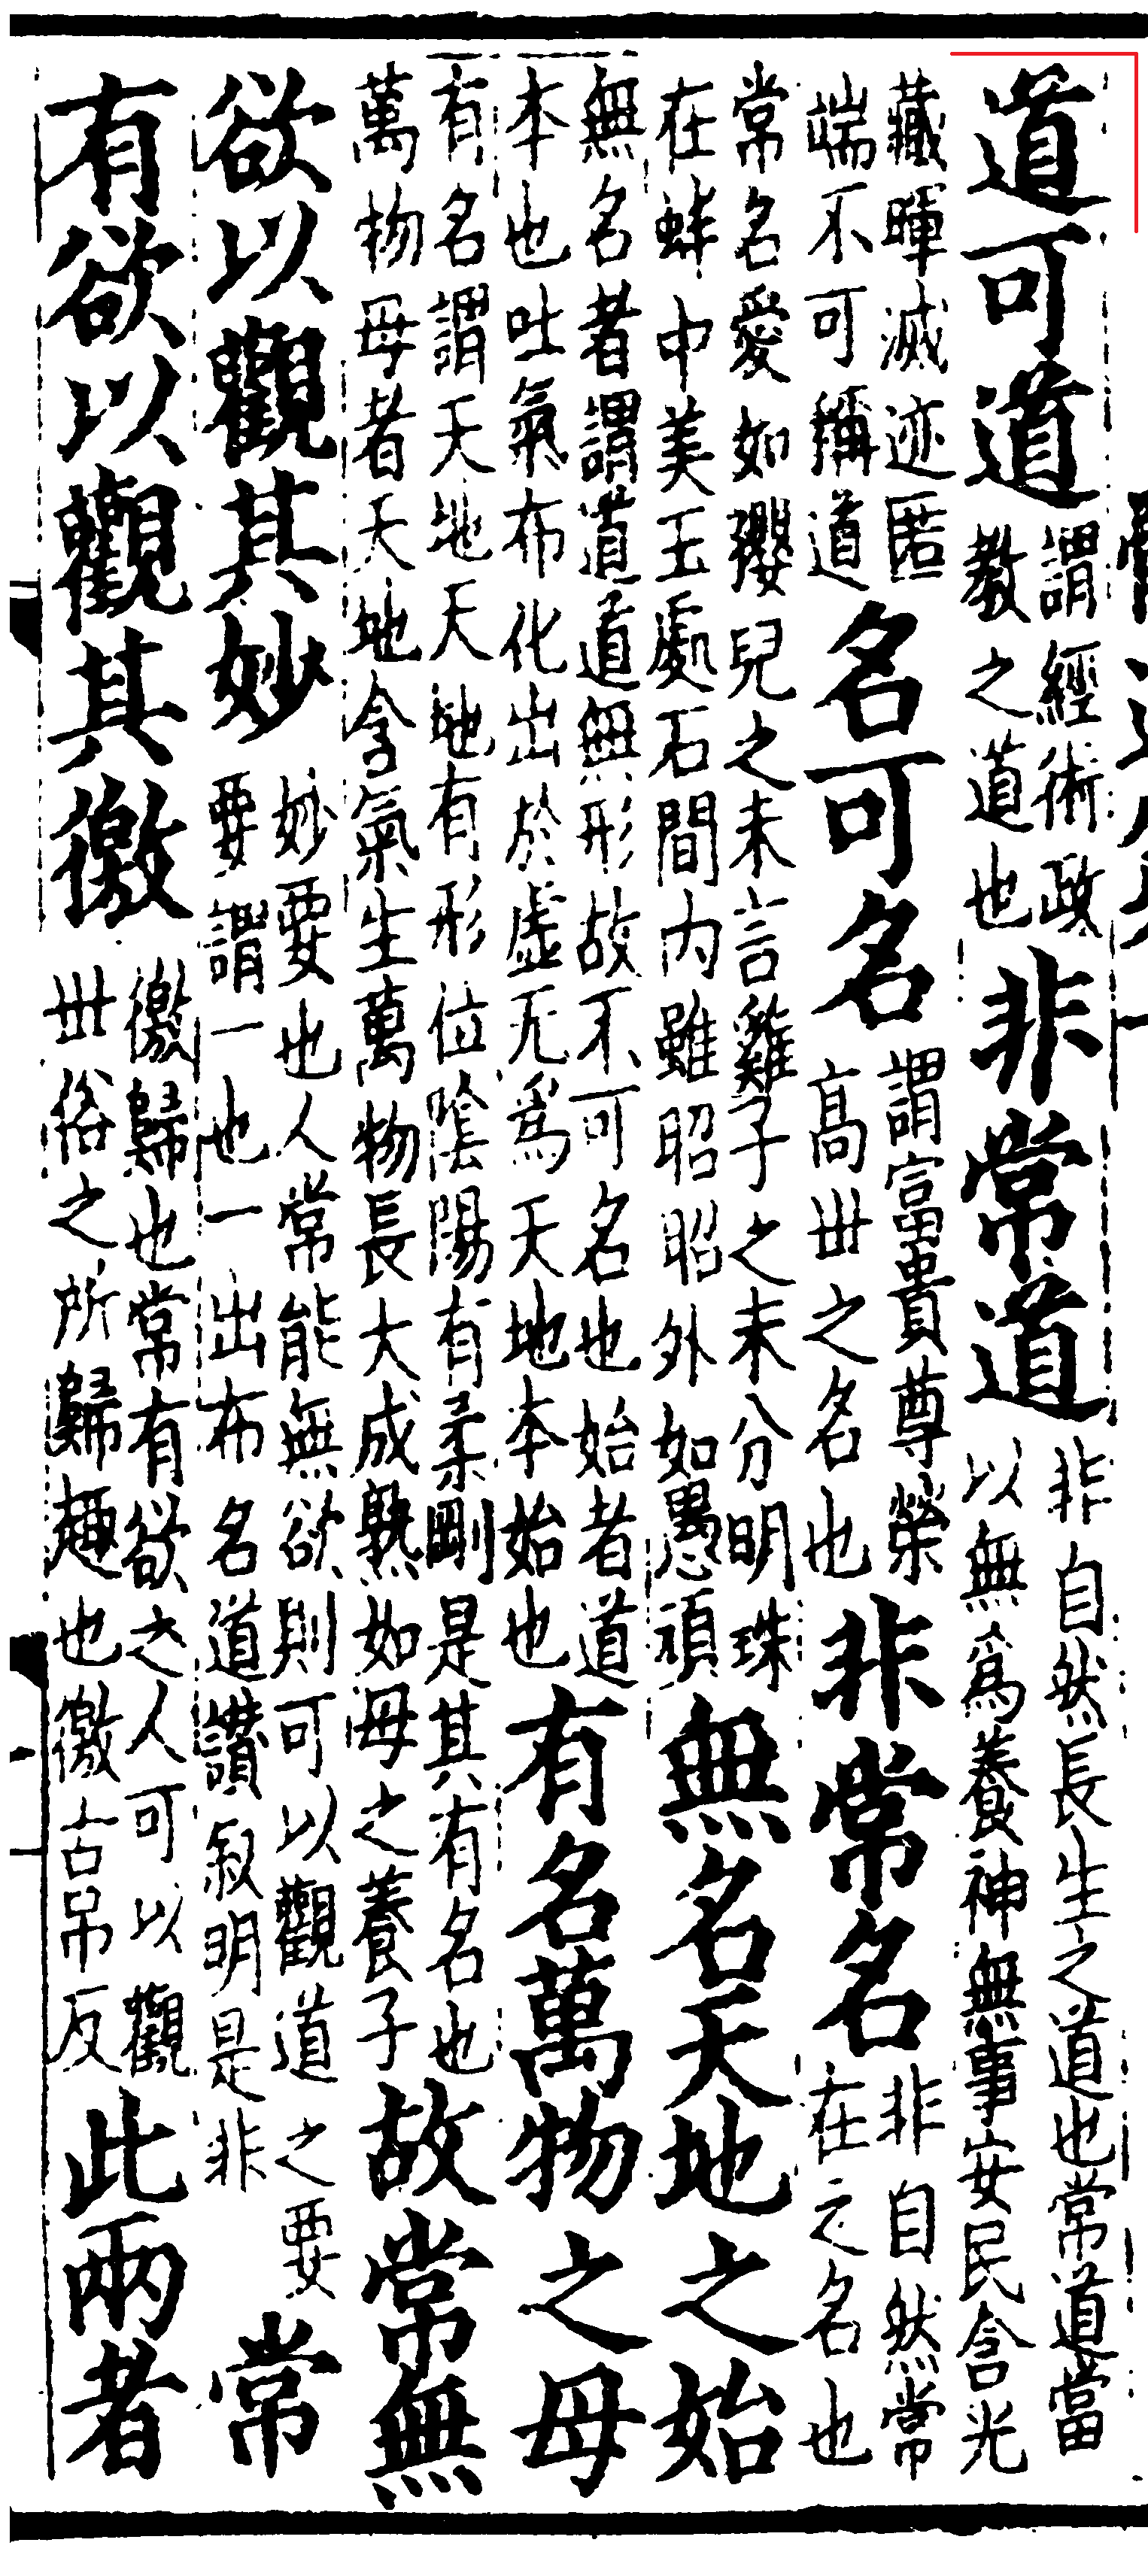 道可道謂經術政教之道也非常道非自然長生之道也常道當以無爲養神無事安民含光
藏暉滅迹匿端不可稱道名可名謂富貴尊榮高丗之名也非常名非自然常在之名也
常名愛如孾兒之未言雞子之未分明珠在蚌中美玉處石間内雖昭昭外如愚頑無名天地之始
無名者謂道道無形故不可名也始者道本也吐氣布化出於虛无爲天地本始也有名萬物之母
有名謂天地天地有形位陰陽有柔剛是其有名也萬物母者天地含氣生萬物長大成熟如母之養子故常無
欲以觀其妙妙要也人常能無欲則可以觀道之要要謂一也一出布名道讚叙明是非常
有欲以觀其徼徼歸也常有欲之人可以觀丗俗之所歸趣也徼古吊反此兩者